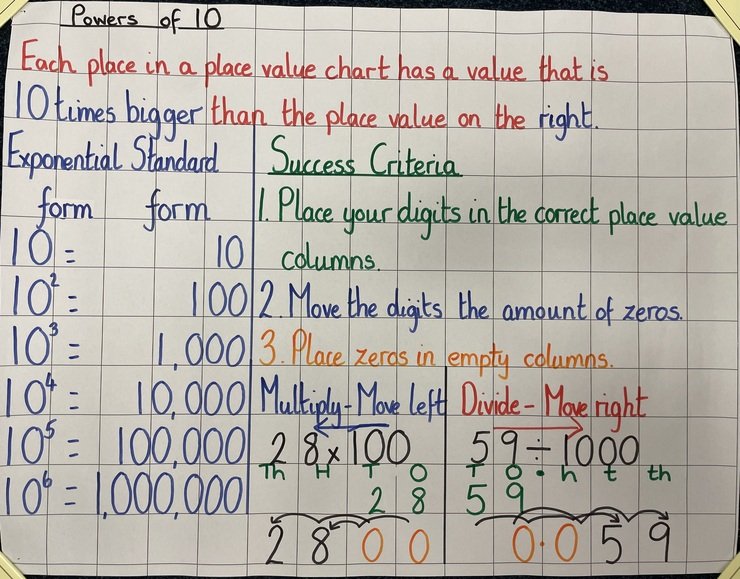 Powers of 10
Each place in a place value chart has a value that is
10 times bigger than the place value on the right.
Exponential Standard
form form
10 = 10
10² = 100
10³ = 1,000
10⁴ = 10,000
10⁵ = 100,000
10⁶ = 1,000,000
Success Criteria
1. Place your digits in the correct place value
columns.
2. Move the digits the amount of zeros.
3. Place zeros in empty columns.
Multiply - Move left
28 x 100
Th H T O
2 8
2 8 0 0
Divide - Move right
59 ÷ 1000
T O . h t th
5 9
0.0 5 9